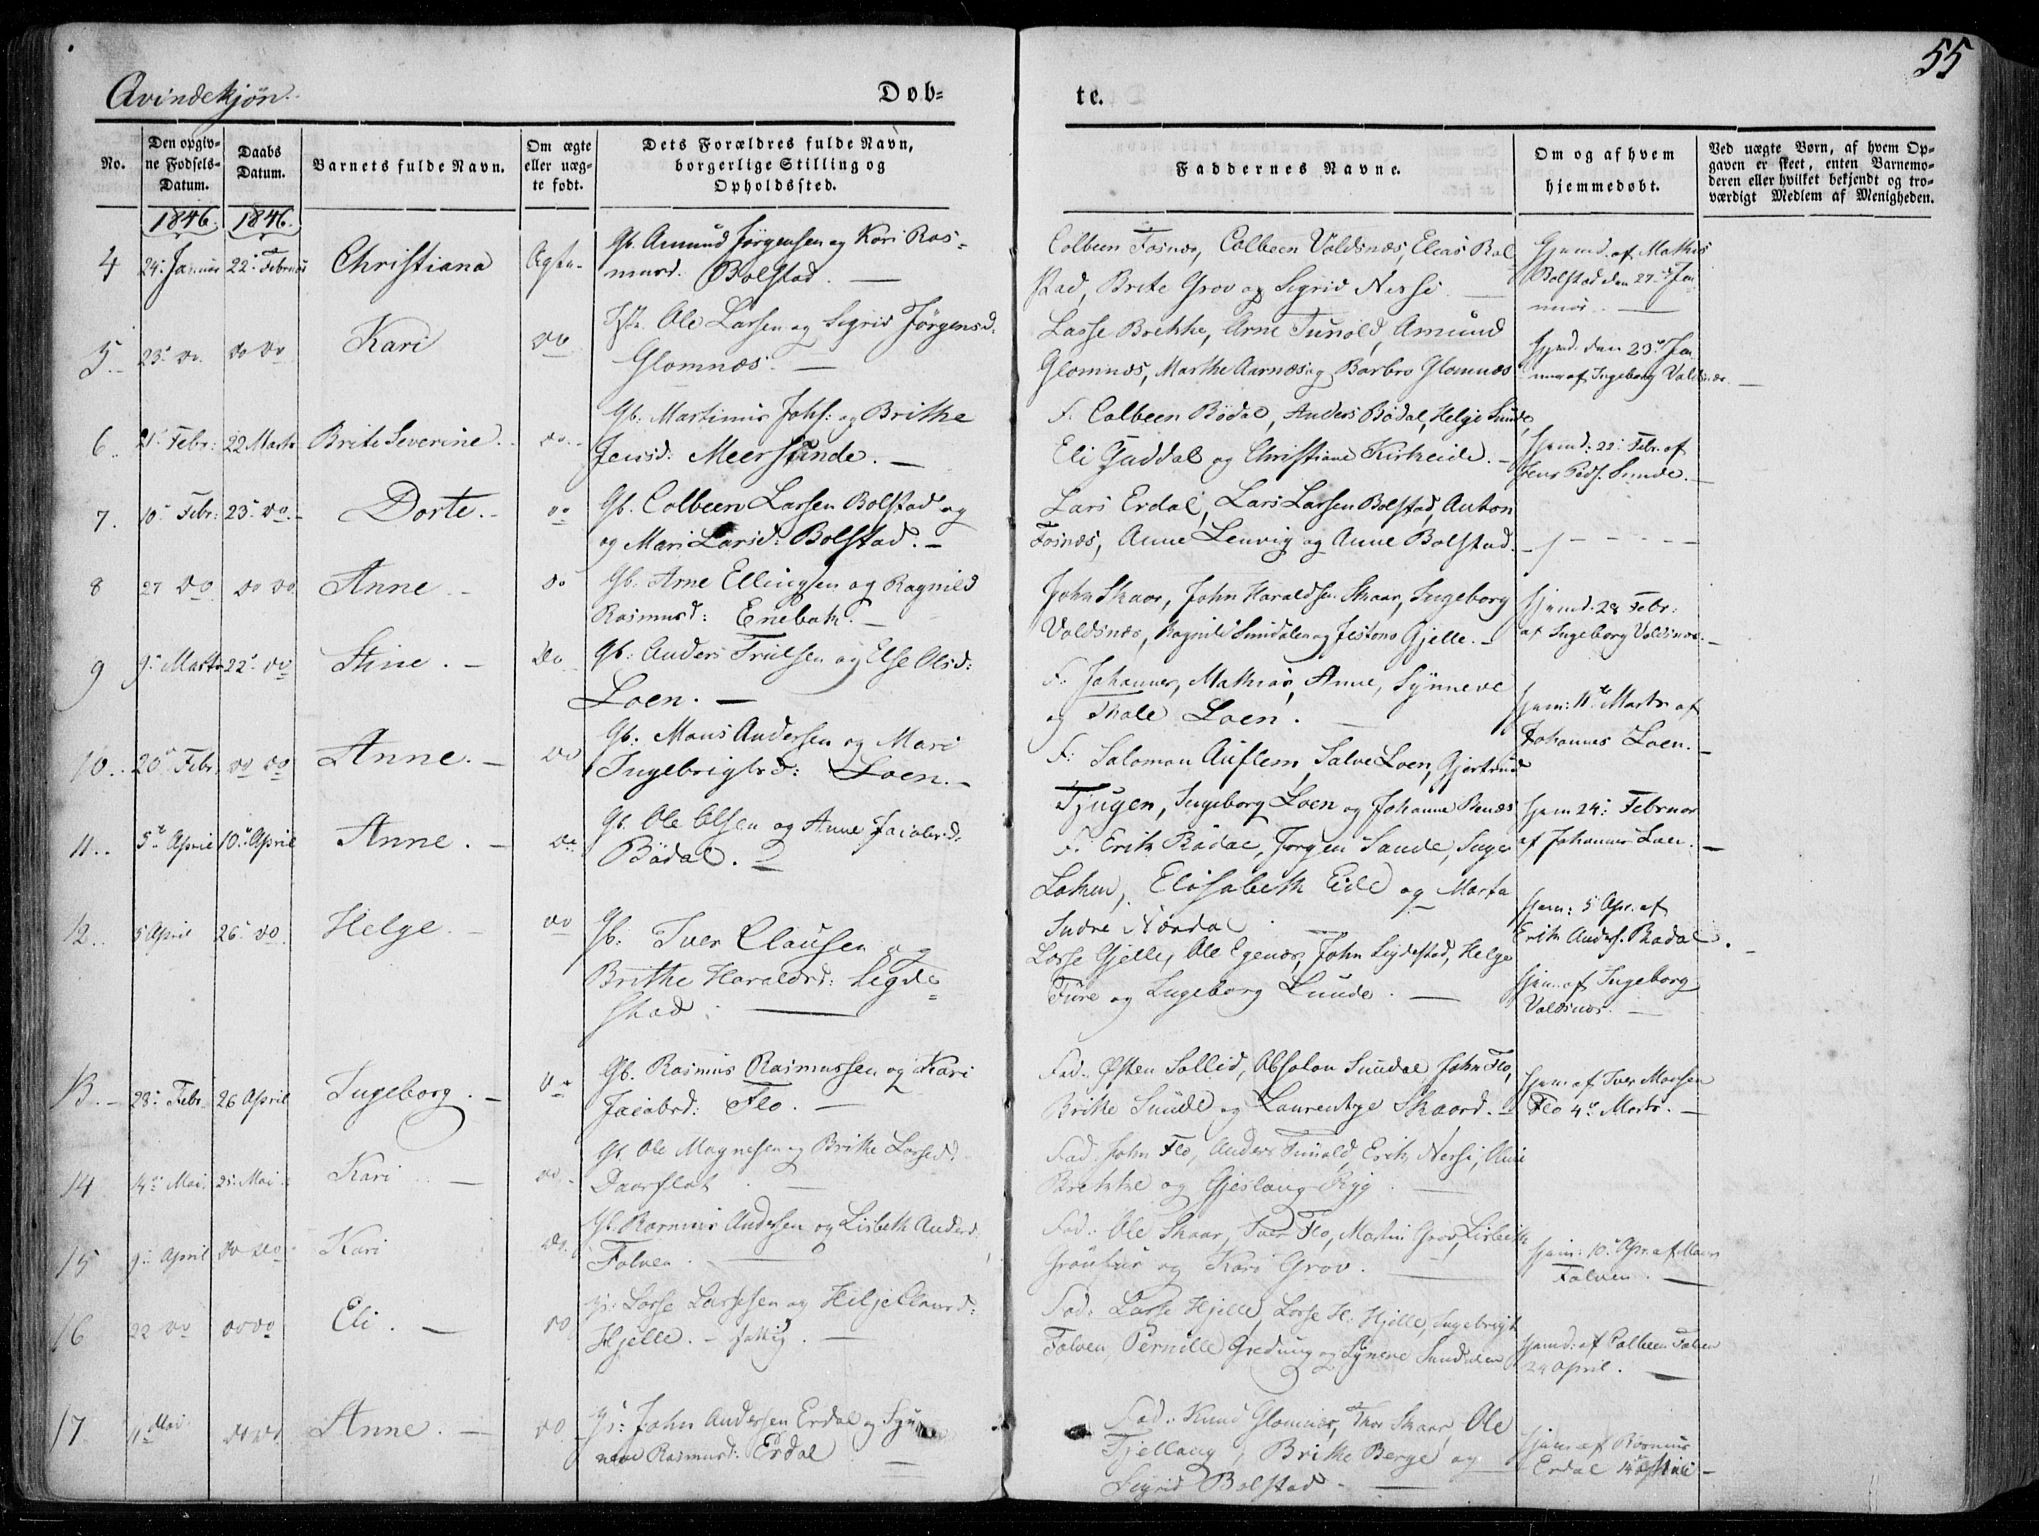 55
Qvindekjøn.
Døb-
te.
No.
Den opgiv-
ne Fødsels-
Datum.
Daabs
Datum.
Barnets fulde Navn.
Om ægte
eller uæg-
te født.
Dets Forældres fulde Navn,
borgerlige Stilling og
Opholdssted.
Faddernes Navne.
Om og af hvem
hjemmedøbt.
Ved uægte Børn, af hvem Op-
gaven er skeet, enten Barnemo-
deren eller hvilket bekjendt og tro-
værdigt Medlem af Menigheden.
1846. 1846.
4 24. Januar 22. Februar Christiana Ægte Gb. Amund Jørgensen og Kari Ras-
musd. Bolstad. —
Colbeen Fosnæs, Colbeen Valdsnæs, Elias Bol
stad, Brite Grov og Sigrid Nesse —
Hjemd. af Mathis
Bolstad den 27. Ja
nuar. —
5. 23. do. do do Kari do Ole Larsen og Sigrid Jørgensd.
Glomnæs. —
Lasse Brekke, Arne Tunold, Amund
Glomnæs, Marthe Aarnæs og Barbro Glomnæs
Hjemd. den 23. Ja
nuar af Ingeborg Valdsnæs. —
6. 21. Febr: 22 Marts Brite Severine. do. Gb. Martinus Johs: og Brithe
Jensd: Meersunde. —
F. Colbeen Bødal, Anders Bødal, Helge Sunde,
Eli Gaddal og Christiane Kirkeide. —
Hjemd: 22. Febr. af
Jens Peds. Sunde. —
7. 10. Febr: 23. do. Dorte. — do Gb. Colbeen Larsen Bolstad og
og Mari Larsd: Bolstad. —
Lars Erdal, Lars Larsen Bolstad, Anton
Fosnæs, Anne Lenvig og Anne Bolstad.
8 27 do. do do Anne. — do Gb. Arne Ellingsen og Ragnild
Rasmusd: Enebak. —
John Skaar, John Haraldsen Skaar, Ingeborg
Valdsnæs, Ragnild Sundalen og Gjelle. —
Hjemd. 28 Febr:
af Ingeborg Valdsnæs. —
9 9. Marts 22. do Stine. — do Gb: Anders Trulsen og Else Olsd:
Loen. —
F. Johannes, Mathias, Anne, Synneve
og Thale Loen. —
Hjem: 11te Marts af
Johannes Loen. —
10.. 20. Febr. do do Anne. — do Gb. Mons Andersen og Mari
Ingebrigtsd: Loen. —
F. Salomon Auflem, Salve Loen, Gjertrud
Tjugen, Ingeborg Loen og Johanne Rænæs
Hjem 24. Februar
af Johannes Loen. —
11.. 5te April 10. April Anne. — do Gb. Ole Olsen og Anne Jacobsd:
Bødal.
F. Erik Bødal, Jørgen Sande, Inger
Loken, Elisabeth Eide og Marta
Indre Nordal
Hjem: 5 Apr. af
Erik Anders. Bødal. —
12.. 5 April 26. do. Helge. — do Gb: Iver Clausen og
Brithe Haraldsd: Segde-
stad. —
Lasse Gjelle, Ole Egenæs, John Segdestad, Helge
Fure og Ingeborg Lunde. —
Hjem. af Ingeborg
Valdsnæs. —
13. 28. Febr. 26 April Ingeborg. — do Gb. Rasmus Rasmussen og Kari
Jacobsd: Flo. —
Fad. Østen Sollid, Absalon Sundal, John Flo,
Brithe Sunde og Laurentze Skaard. —
Hjem af Iver Monsen
Flo 4. Marts. —
14 14. Mai. 21. Mai Kari — do. Gb. Ole Magnesen og Brithe Lassesd.
Daarflot. —
Fad. John Flo, Anders Tunold, Erik Nesse, Anne
Brekke og Gjeslaug Ryg. —
15 9. April do do Kari do. Gb. Rasmus Andersen og Lisbeth Andersd.
Folven. —
Fad. Ole Skaar, Iver Flo, Martin Grov, Lisbeth
og Kari Grov. —
Hjem: 10. Apr. af Mons
Folven. —
16 22 do do do Eli. — do Lasse Lassesen og Hilje Clausd:
Hjelle. — fattig —
Fad. Lasse Hjelle, Lasse H. Hjelle, Ingebrigt
Folven, Pernille Greding og Synneve Sundalen
Hjemd: af Colbeen Folven
24 April. —
17 11 Mai do do. Anne. — do Gb: John Andersen Erdal og Syn
neve Rasmusd: Erdal —
Fad. Knud Glomnæs, Thor Skaar, Ole
Tjellaug, Brithe Berge og
Sigrid Bolstad. —
Hjem af Rasmus
Erdal 14 Mai —